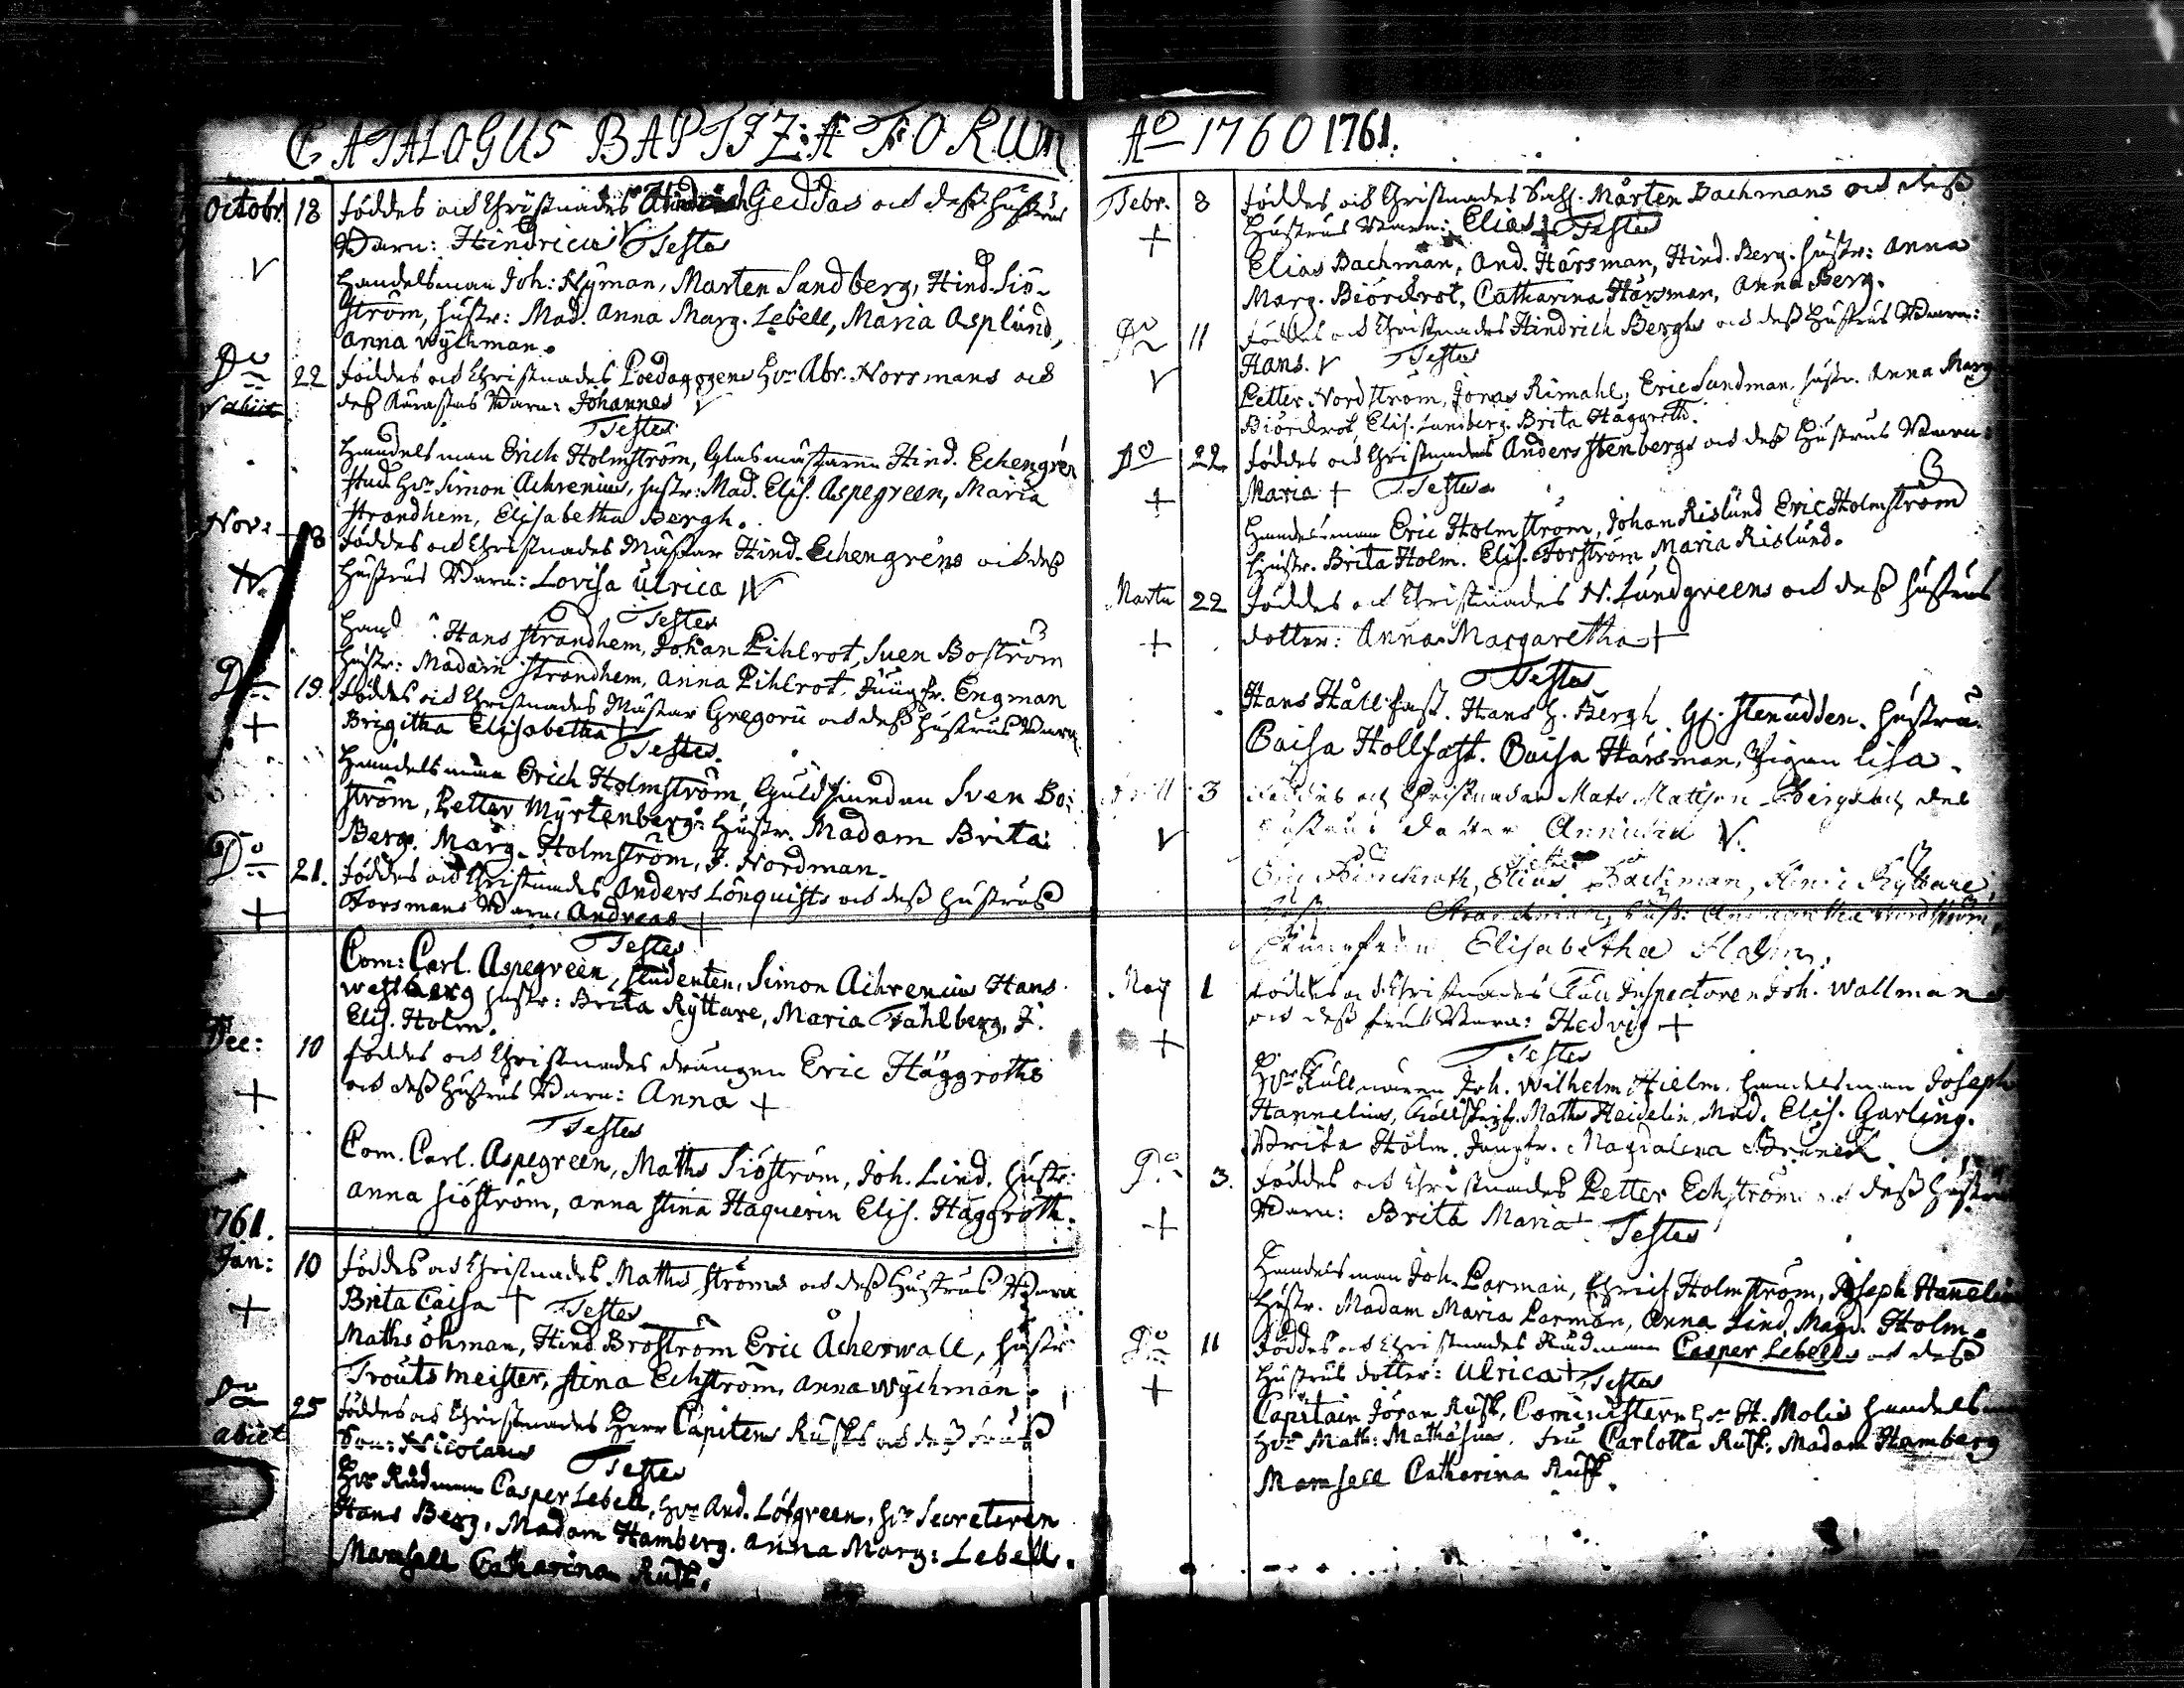 CATALOGUS BAPTIZATORUM
Octobr. 18 föddes och Christnades Hindrich Geddas och deß hustrus
Barn: Hindricus V Testes
V Handelsman Joh: Nyman, Marten Sandberg, Hind. Siö-
ström, hustr: Mad. Anna Marg. Lebell, Maria Asplund,
Anna Wychman.
Do 22 föddes och Christnades Poedagogens Hr Abr. Norrmans och
V abiit deß Kärastas Barn: Johannes V
Testes
Handelsman Erich Holmström, Glasmästaren Hind. Echengrén
Stud. Hr Simon Achrenius, hustr: Mad. Elis. Aspegreen, Maria
Strandhem, Elisabetha Bergh.
Nov: 8 föddes och Christnades Mästar Hind. Echengréns och deß
V. hustrus Barn: Lovisa Ulrica V
Testes
Hans Strandhem, Johan Pihlrot, Sven Boström
hustr: Madam Strandhem, Anna Pihlrot, Jungfr. Engman
Do 19. föddes och Christnades Mästar Gregorii och deß hustrus Barn
+ Brigitha Elisabetha +
Testes.
Handelsman Erich Holmström, Guldsmeden Sven Bo-
ström, Petter Myrtenberg: hustr. Madam Brita
Berg. Marg. Holmström, J. Nordman.
Do 21. föddes och Christnades Anders Lönquists och deß hustrus
+ Forsmans Barn: Andreas +
Testes
Com: Carl. Aspegreen, Studenten, Simon Achrenius Hans
Wessberg hustr: Brita Ryttare, Maria Fahlberg, J.
Elis. Holm.
Dec: 10 föddes och Christnades drängen Eric Häggroths
+ och deß hustrus Barn: Anna +
Testes
Com. Carl. Aspegreen, Maths Siöström, Joh. Lind. hustr:
Anna Siöström, Anna Stina Haquerin Elis. Häggroth.
1761.
Jan: 10 föddes och Christnades Maths Ströms och deß hustrus Barn
+ Brita Caisa + Testes
Maths Öhman, Hind. Broström Eric Åcherwall, hustr
Troutsmeister, Stina Echström, Anna Wychman.
Do 25 föddes och Christnades Herr Capitens Rusks och deß frus
abiit Son: Nicolaus
Testes
Hr Rådman Casper Lebell, Hr And. Löfgreen, Hr Secreteren
Hans Berg, Madam Hamberg. Anna Marg: Lebell.
Mamsell Catharina Rusk.
Ao 1760 1761.
Febr. 8 föddes och Christnades Mårten Bachmans och deß
+ hustrus Barn: Elias + Testes
Elias Bachman, And. Hårsman, Hind. Berg. hustr: Anna
Marg. Biörckrot, Catharina Hårsman, Anna Berg.
Do 11 föddes och Christnades Hindrich Berghs och deß hustrus Barn:
V Hans. V Testes
Petter Nordström, Jonas Rimahl, Eric Sundman, hustr. Anna Marg
Biörckrot, Elis. Sundberg. Brita Häggroth.
Do 22. föddes och Christnades Anders Stenbergs och deß hustrus Barn:
+ Maria + Testes
Handelsman Eric Holmström, Johan Rislund Eric Holmström
hustr. Brita Holm. Elis. Forström Maria Rislund.
Martii 22 föddes och Christnades N. Lundgreens och deß hustrus
+ dotter: Anna Margaretha +
Testes
Hans Hållfast. Hans H. Bergh. G. Stenudden. hustru
Caisa Hollfast. Caisa Hårsman, Pigan Lisa.
3 föddes och Christnades Mats Matsson Bergs och des
V hustrus dotter Annicka V.
Testes
Eric Biörckroth, Elias Backman, Henric Ryttare,
Elisabetha Holm.
May 1 föddes och Christnades Tull Inspectoren Joh. Wallmans
+ och deß frus Barn: Hedvig +
Testes
Hr Rullmånen Joh. Wilhelm Hielm. Handelsman Joseph
Hannelius, Maths Heidelin, Mad. Elis. Garling.
Brita Holm. Jungfr. Magdalena Bruneck
Do 3. föddes och Christnades Petter Echströms och deß hustrus
+ Barn: Brita Maria + Testes
Handelsman Joh. Parman, Ehrich Holmström, Joseph Hannelius
Hustr. Madam Maria Parman, Anna Lind, Magd. Holm.
Do 11 föddes och Christnades Rådman Casper Lebells och deß
+ hustrus dotter: Ulrica + Testes
Capitain Jöran Rusk, Comministern Hr H. Molis Handelsman
Hr Math: Mathesius. fru Carlotta Rusk. Madam Hamberg
Mamsell Catharina Rusk.